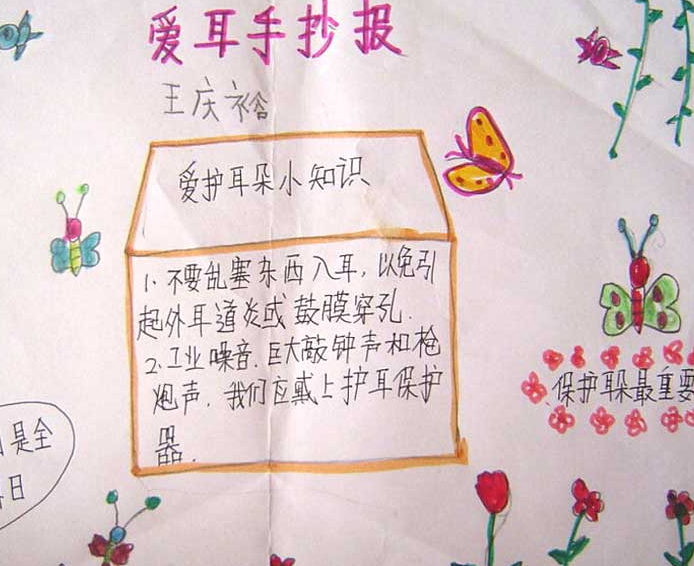 爱耳手抄报
王庆裕
爱护耳朵小知识
1. 不要乱塞东西入耳, 以免引
起外耳道炎或鼓膜穿孔.
2. 工业噪音. 巨大敲钟声和枪
炮声. 我们应戴上护耳保护
器.
保护耳朵最重要
是全
日